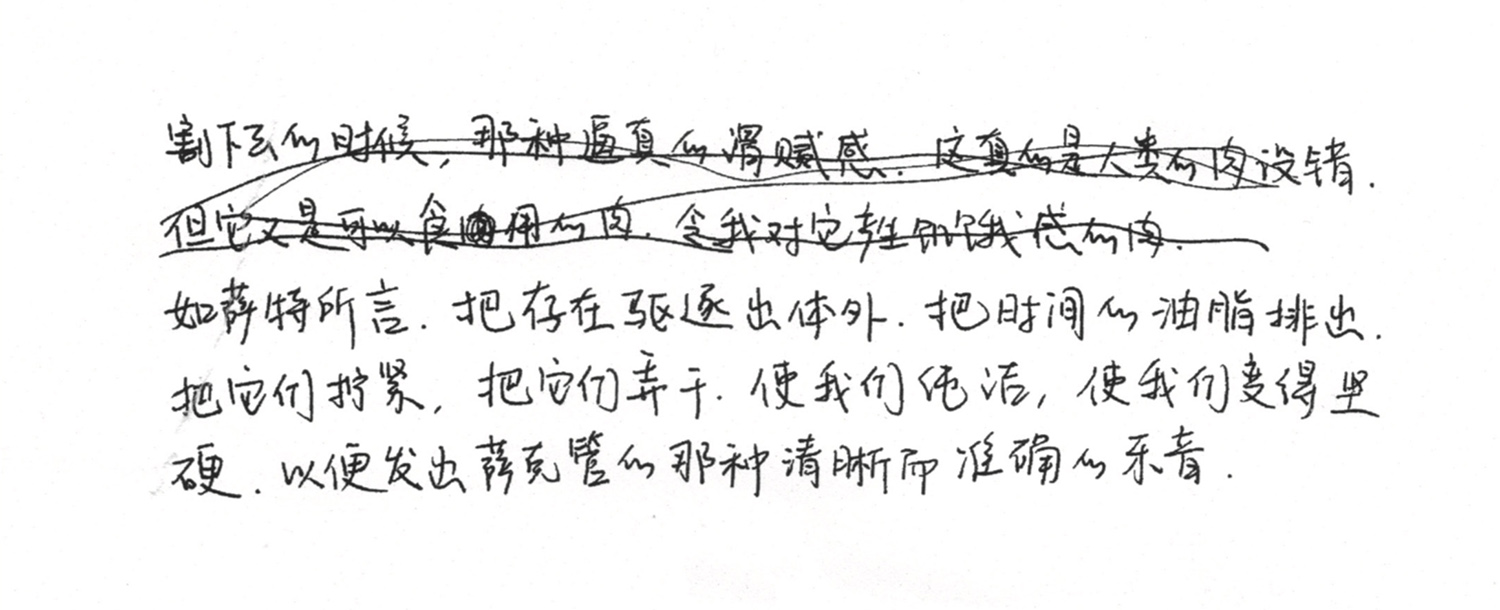 割下去的时候，那种逼真的滑腻感．这真的是人类的肉没错．
但它又是可以食用的肉．令我对它产生饥饿感的肉．
如萨特所言．把存在驱逐出体外．把时间的油脂排出．
把它们拧紧，把它们弄干．使我们纯洁，使我们变得坚
硬．以便发出萨克管的那种清晰而准确的乐音．